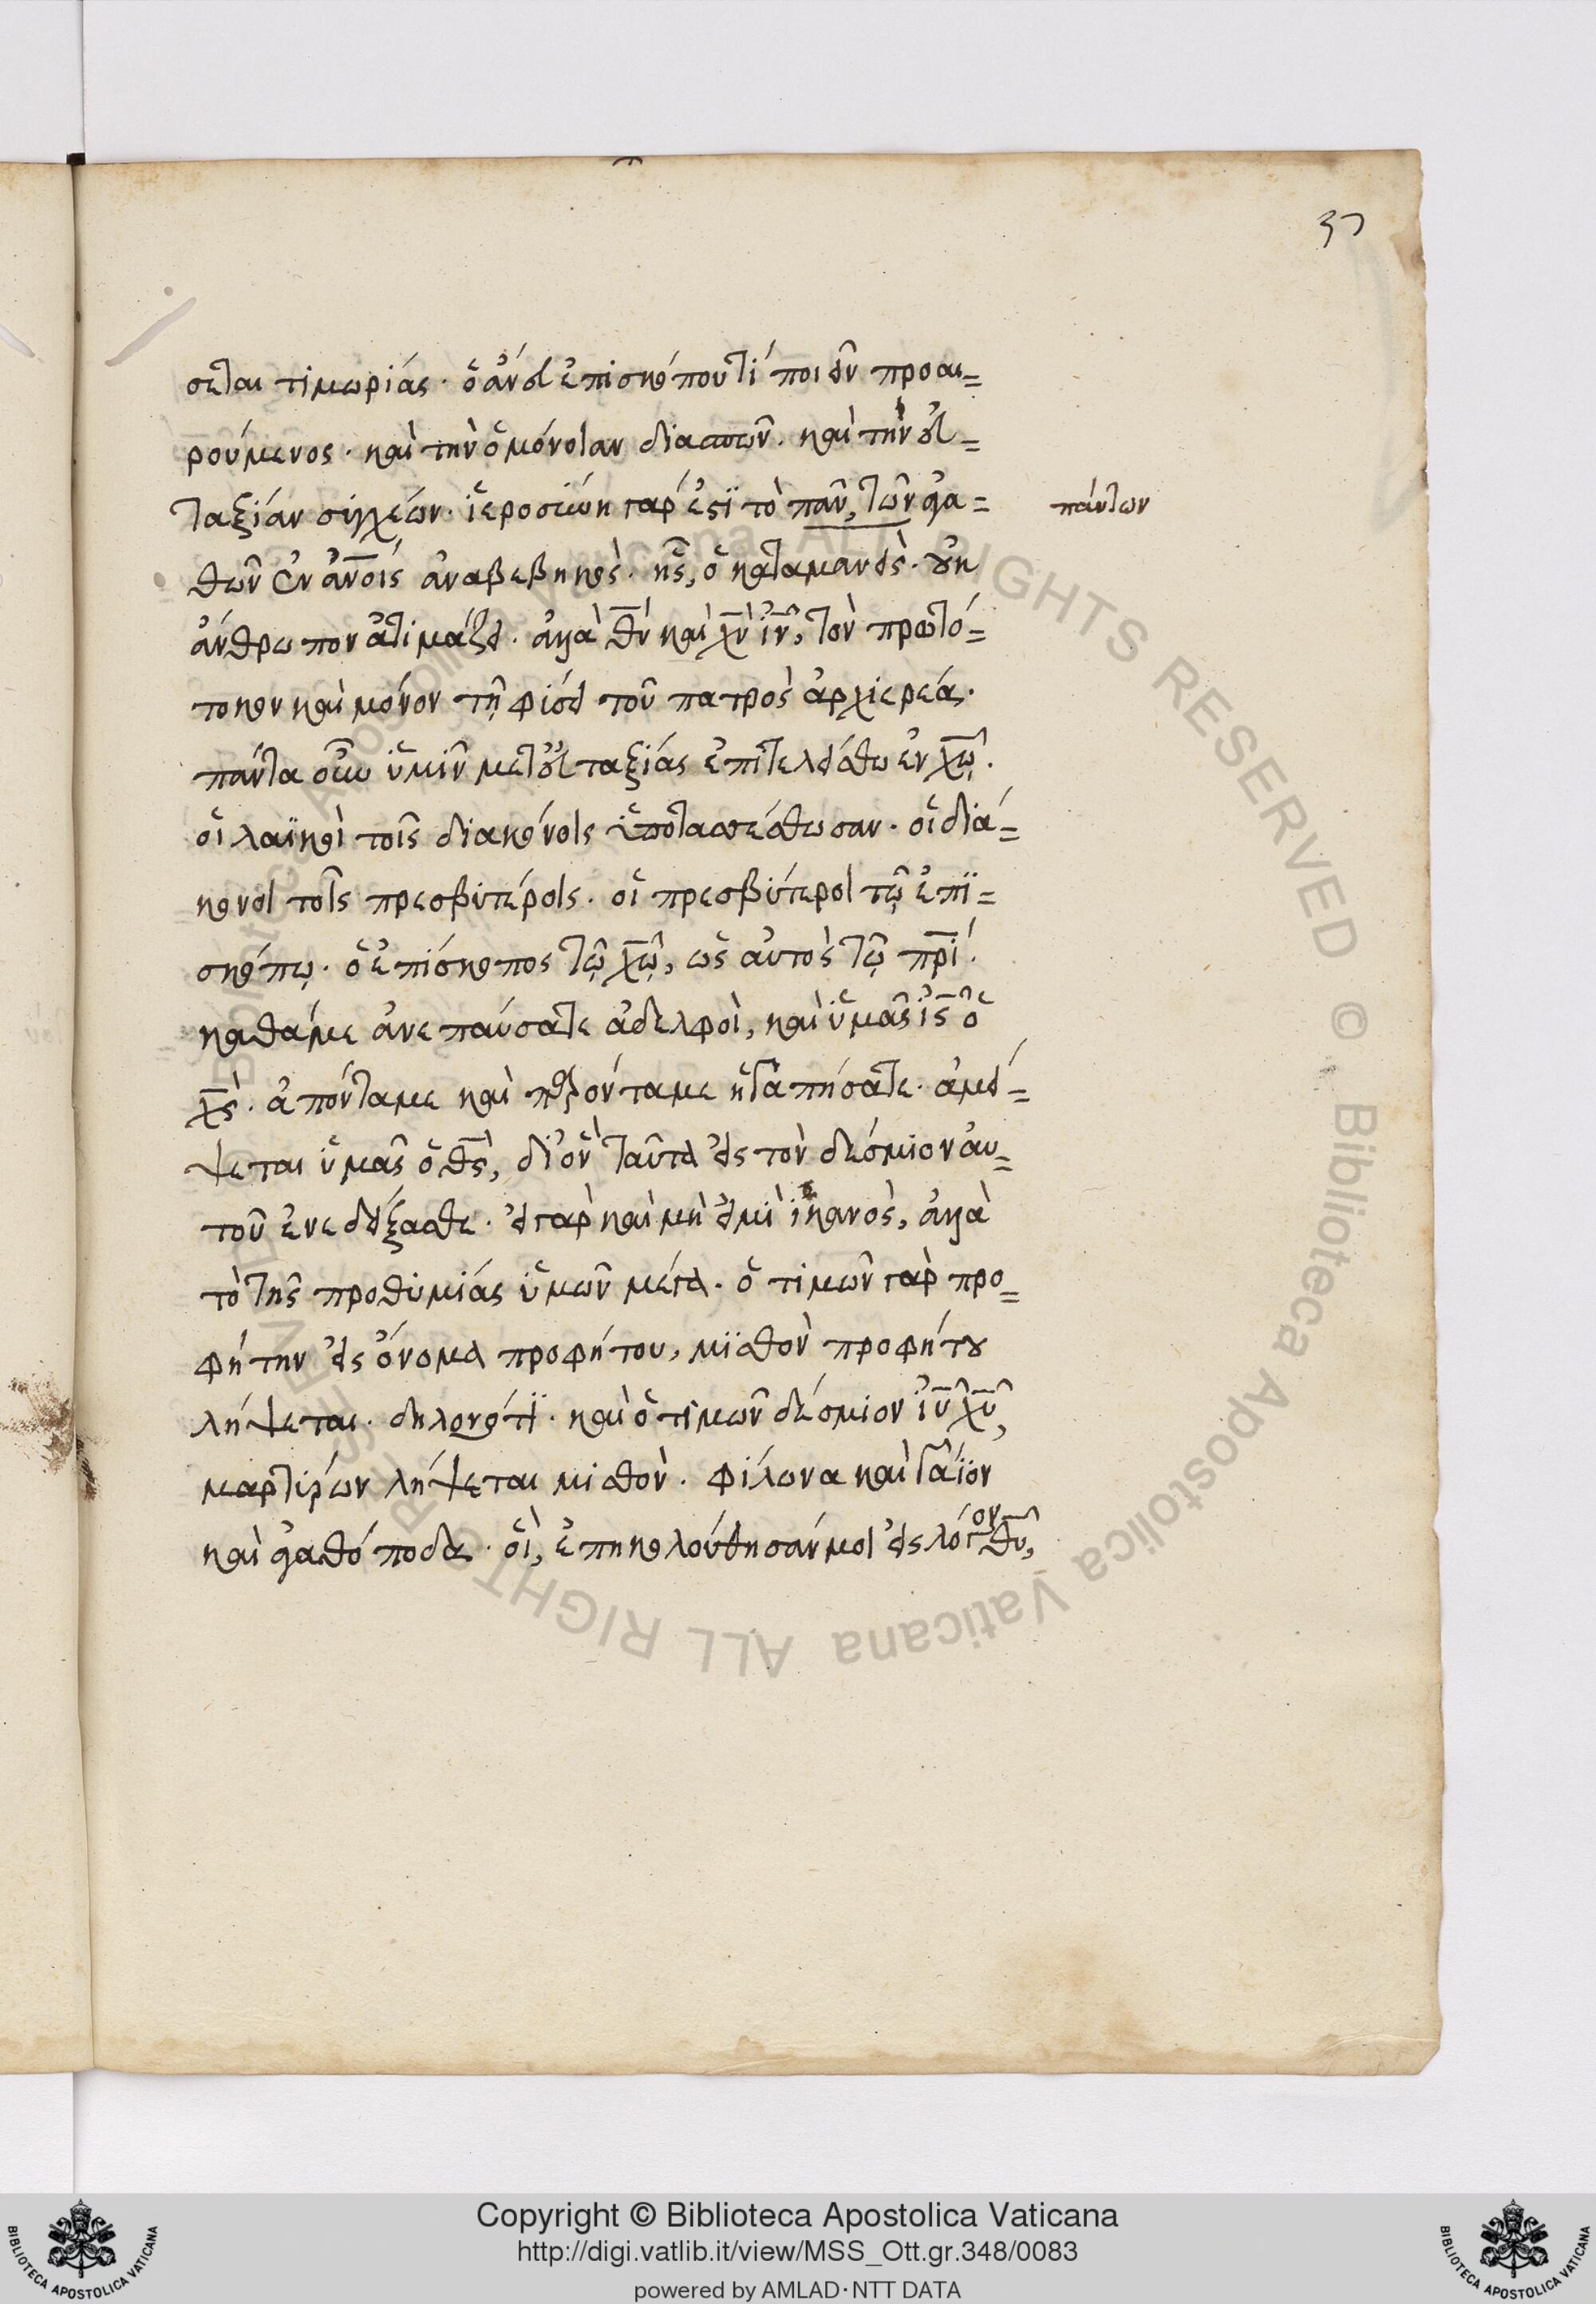 37
σεται τιμωρίας· ὁ ἄνευ ἐπισκόπου τί ποιεῖν προαι=
ρούμενος· καὶ τὴν ὁμόνοιαν διασπῶν· καὶ τὴν εὐ=
ταξίαν συγχέων· ἱεροσύνη γάρ ἐστι τὸ πᾶν, τῶν ἀγα=
πάντων
θῶν ἐν ἀν̅οις ἀναβεβηκὸς· ἧς, ὁ καταμανεὶς· οὐκ
ἄνθρωπον ἀτιμάζει· ἀλλὰ θ̅ν καὶ χ̅ν ι̅ν, τὸν πρωτό=
τοκον καὶ μόνον τῇ φύσει τοῦ πατρὸς ἀρχιερέα·
πάντα οὖν ὑμῖν μετ' εὐταξίας ἐπιτελείσθω ἐν χ̅ω·
οἱ λαϊκοὶ τοῖς διακόνοις ὑποτασσέσθωσαν· οἱ διά=
κονοι τοῖς πρεσβυτέροις· οἱ πρεσβύτεροι τῷ ἐπι=
σκόπῳ· ὁ ἐπίσκοπος τῷ χ̅ω, ὡς αὐτὸς τῷ π̅ρι·
καθά με ἀνεπαύσατε ἀδελφοὶ, καὶ ὑμᾶς ι̅ς ὁ
χ̅ς· ἀπόντα με καὶ παρόντα με ἠγαπήσατε· ἀμεί=
ψεται ὑμᾶς ὁ θ̅ς, δι' ὃν ταῦτα εἰς τὸν δέσμιον αὐ=
τοῦ ἐνεδείξασθε· εἰ γὰρ καὶ μὴ εἰμὶ ἱκανὸς, ἀλλὰ
τὸ τῆς προθυμίας ὑμῶν μέγα· ὁ τιμῶν γὰρ προ=
φήτην εἰς ὄνομα προφήτου, μισθὸν προφήτου
λήψεται· δηλονότι· καὶ ὁ τιμῶν δέσμιον ι̅υ χ̅υ,
μαρτύρων λήψεται μισθὸν· φίλωνα καὶ γάϊον
καὶ ἀγαθόποδα· οἳ, ἐπηκολούθησάν μοι εἰς λόγον θ̅υ,
Copyright © Biblioteca Apostolica Vaticana
http://digi.vatlib.it/view/MSS_Ott.gr.348/0083
powered by AMLAD·NTT DATA